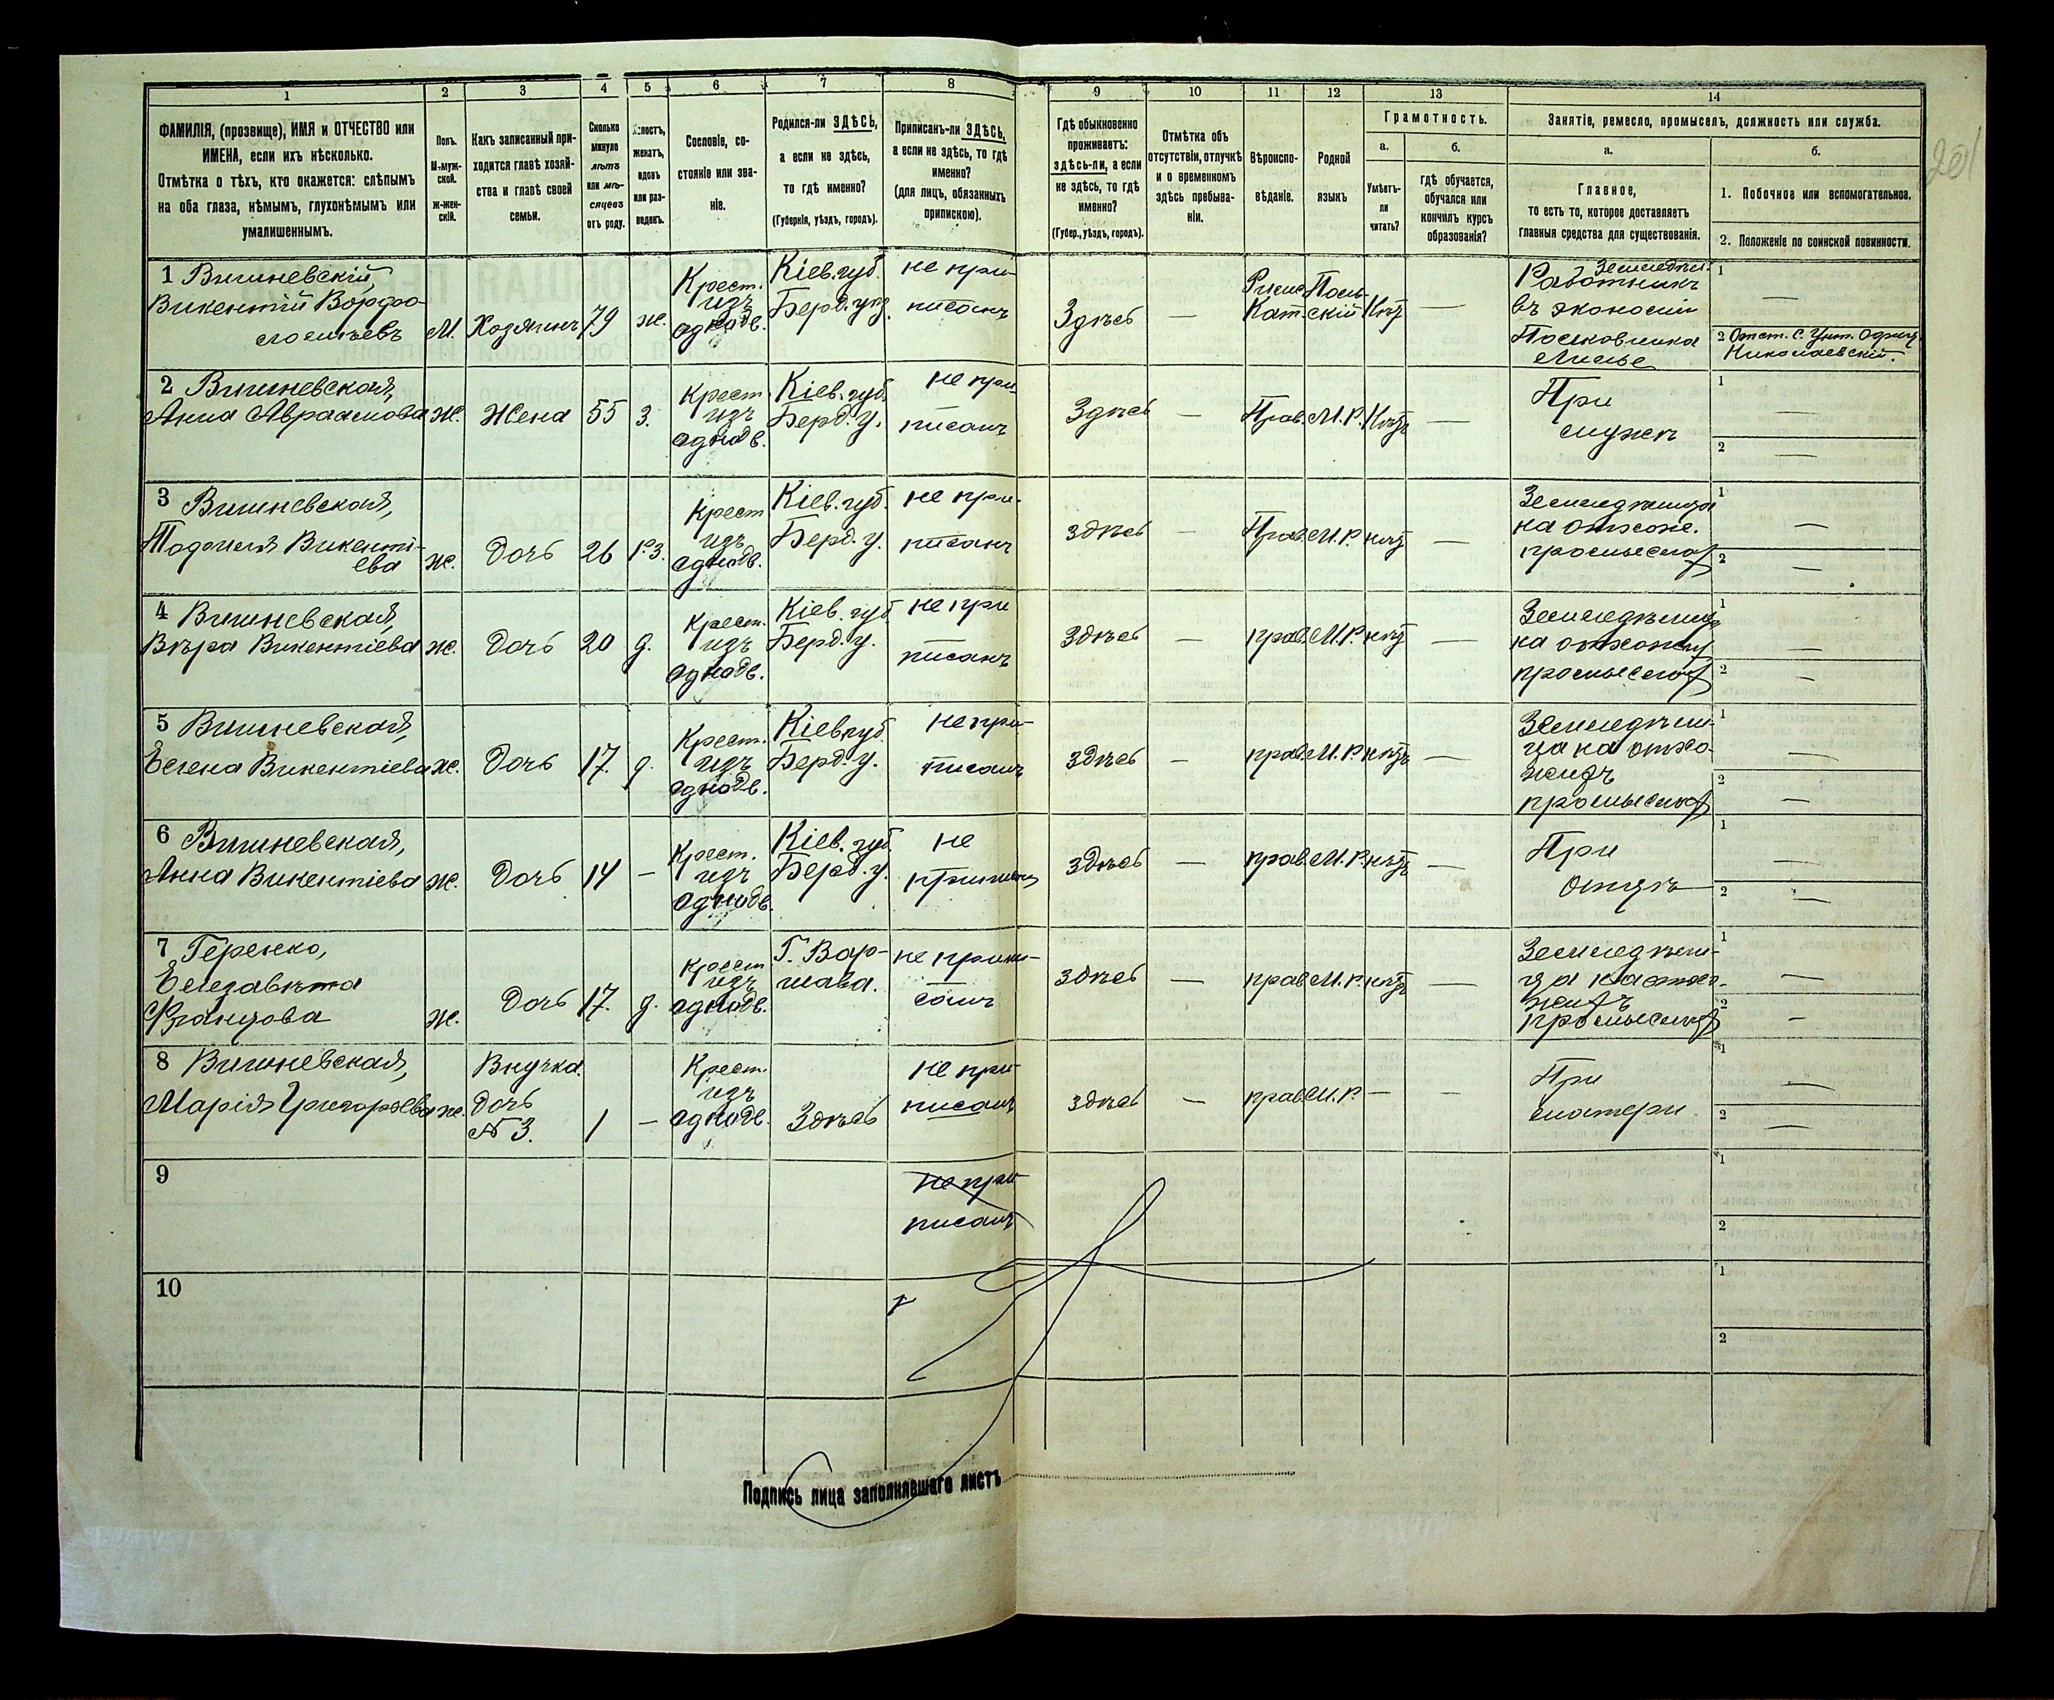 1 2 3 4 5 6 7 8 9 10 11 12 13 14
ФАМИЛІЯ, (прозвище), ИМЯ и ОТЧЕСТВО или
ИМЕНА, если ихъ нѣсколько.
Отмѣтка о тѣхъ, кто окажется: слѣпымъ
на оба глаза, нѣмымъ, глухонѣмымъ или
умалишеннымъ.
Полъ.
М-муж-
ской.
Ж-жен-
скій.
Какъ записанный при-
ходится главѣ хозяй-
ства и главѣ своей
семьи.
Сколько
минуло
лѣтъ
или мѣ-
сяцевъ
отъ роду.
Холостъ,
женатъ,
вдовъ
или раз-
веденъ.
Сословіе, со-
стояніе или зва-
ніе.
Родился-ли ЗДѢСЬ,
а если не здѣсь,
то гдѣ именно?
(Губернія, уѣздъ, городъ).
Приписанъ-ли ЗДѢСЬ,
а если не здѣсь, то гдѣ
именно?
(для лицъ, обязанныхъ
припискою).
Гдѣ обыкновенно
проживаетъ:
здѣсь-ли, а если
не здѣсь, то гдѣ
именно?
(Губер., уѣздъ, городъ).
Отмѣтка объ
отсутствіи, отлучкѣ
и о временномъ
здѣсь пребыва-
ніи.
Вѣроиспо-
вѣданіе.
Родной
языкъ
Грамотность.
а.
Умѣетъ-
ли
читать?
б.
гдѣ обучается,
обучался или
кончилъ курсъ
образованія?
Занятіе, ремесло, промыселъ, должность или служба.
а.
Главное,
то есть то, которое доставляетъ
главныя средства для существованія.
б.
1. Побочное или вспомогательное.
2. Положеніе по воинской повинности.
201
1 Вишневскій,
Викентій Варфо-
ломѣевъ
М.
Хозяинъ
79
ж.
Крест.
изъ
однодв.
Кіев. губ.
Берд. уѣз.
не при-
писанъ
Здѣсь
—
Римс.
Кат.
Поль-
скій
Нѣтъ
—
Работникъ
въ экономіи
1 —
2 Отст. С. Унт. Офиц.
Николаевскій.
2 Вишневская,
Анна Авраамова
Ж.
Жена
55
З.
Крест
изъ
однодв.
Кіев. губ.
Берд. у.
не при-
писанъ
Здѣсь
—
Прав.
М. Р.
Нѣтъ
—
При
мужѣ
1 —
2 —
3 Вишневская,
Викенті-
ева
ж.
Дочь
26
Крест
изъ
однодв.
Кіев. губ.
Берд. у.
не при-
писанъ
здѣсь
—
Прав.
М. Р.
нѣтъ
—
на отхож.
1 —
2 —
4 Вишневская,
Вѣра Викентіева
ж.
Дочь
20
д.
Крест.
изъ
однодв.
Кіев. губ
Берд. у.
не при
писанъ
здѣсь
—
прав.
М. Р.
нѣтъ
—
1 —
2 —
5 Вишневская,
Елена Викентіева
ж.
Дочь
17.
д.
Крест.
изъ
однодв.
Кіев. губ.
Берд. у.
не при-
писанъ
здѣсь
—
прав.
М. Р.
нѣтъ
—
Земледѣли-
ца на отхо-
жихъ
промыслах
1 —
2 —
6 Вишневская,
Анна Викентіева
ж.
Дочь
14
—
Крест.
изъ
однодв.
Кіев. губ
Берд. у.
не
приписан
здѣсь
—
прав.
М. Р.
нѣтъ
—
При
отцѣ
1 —
2 —
7 Геренко,
Елизавѣта
Францова
ж.
Дочь
17.
д.
Крест
изъ
однодв.
Г. Вар-
шава.
не припи-
санъ
здѣсь
—
прав.
М. Р.
нѣтъ
—
Земледѣли-
ца на отхо-
жихъ
промыслах
1 —
2 —
8 Вишневская,
Марія Григорьева
ж.
Внучка.
Дочь
№ 3.
1
—
Крест.
изъ
однодв.
Здѣсь
не при-
писанъ
здѣсь
—
прав.
М. Р.
—
—
При
матери
1 —
2 —
9
не при-
писанъ
1
2
10
1
2
Подпись лица заполнявшаго листъ